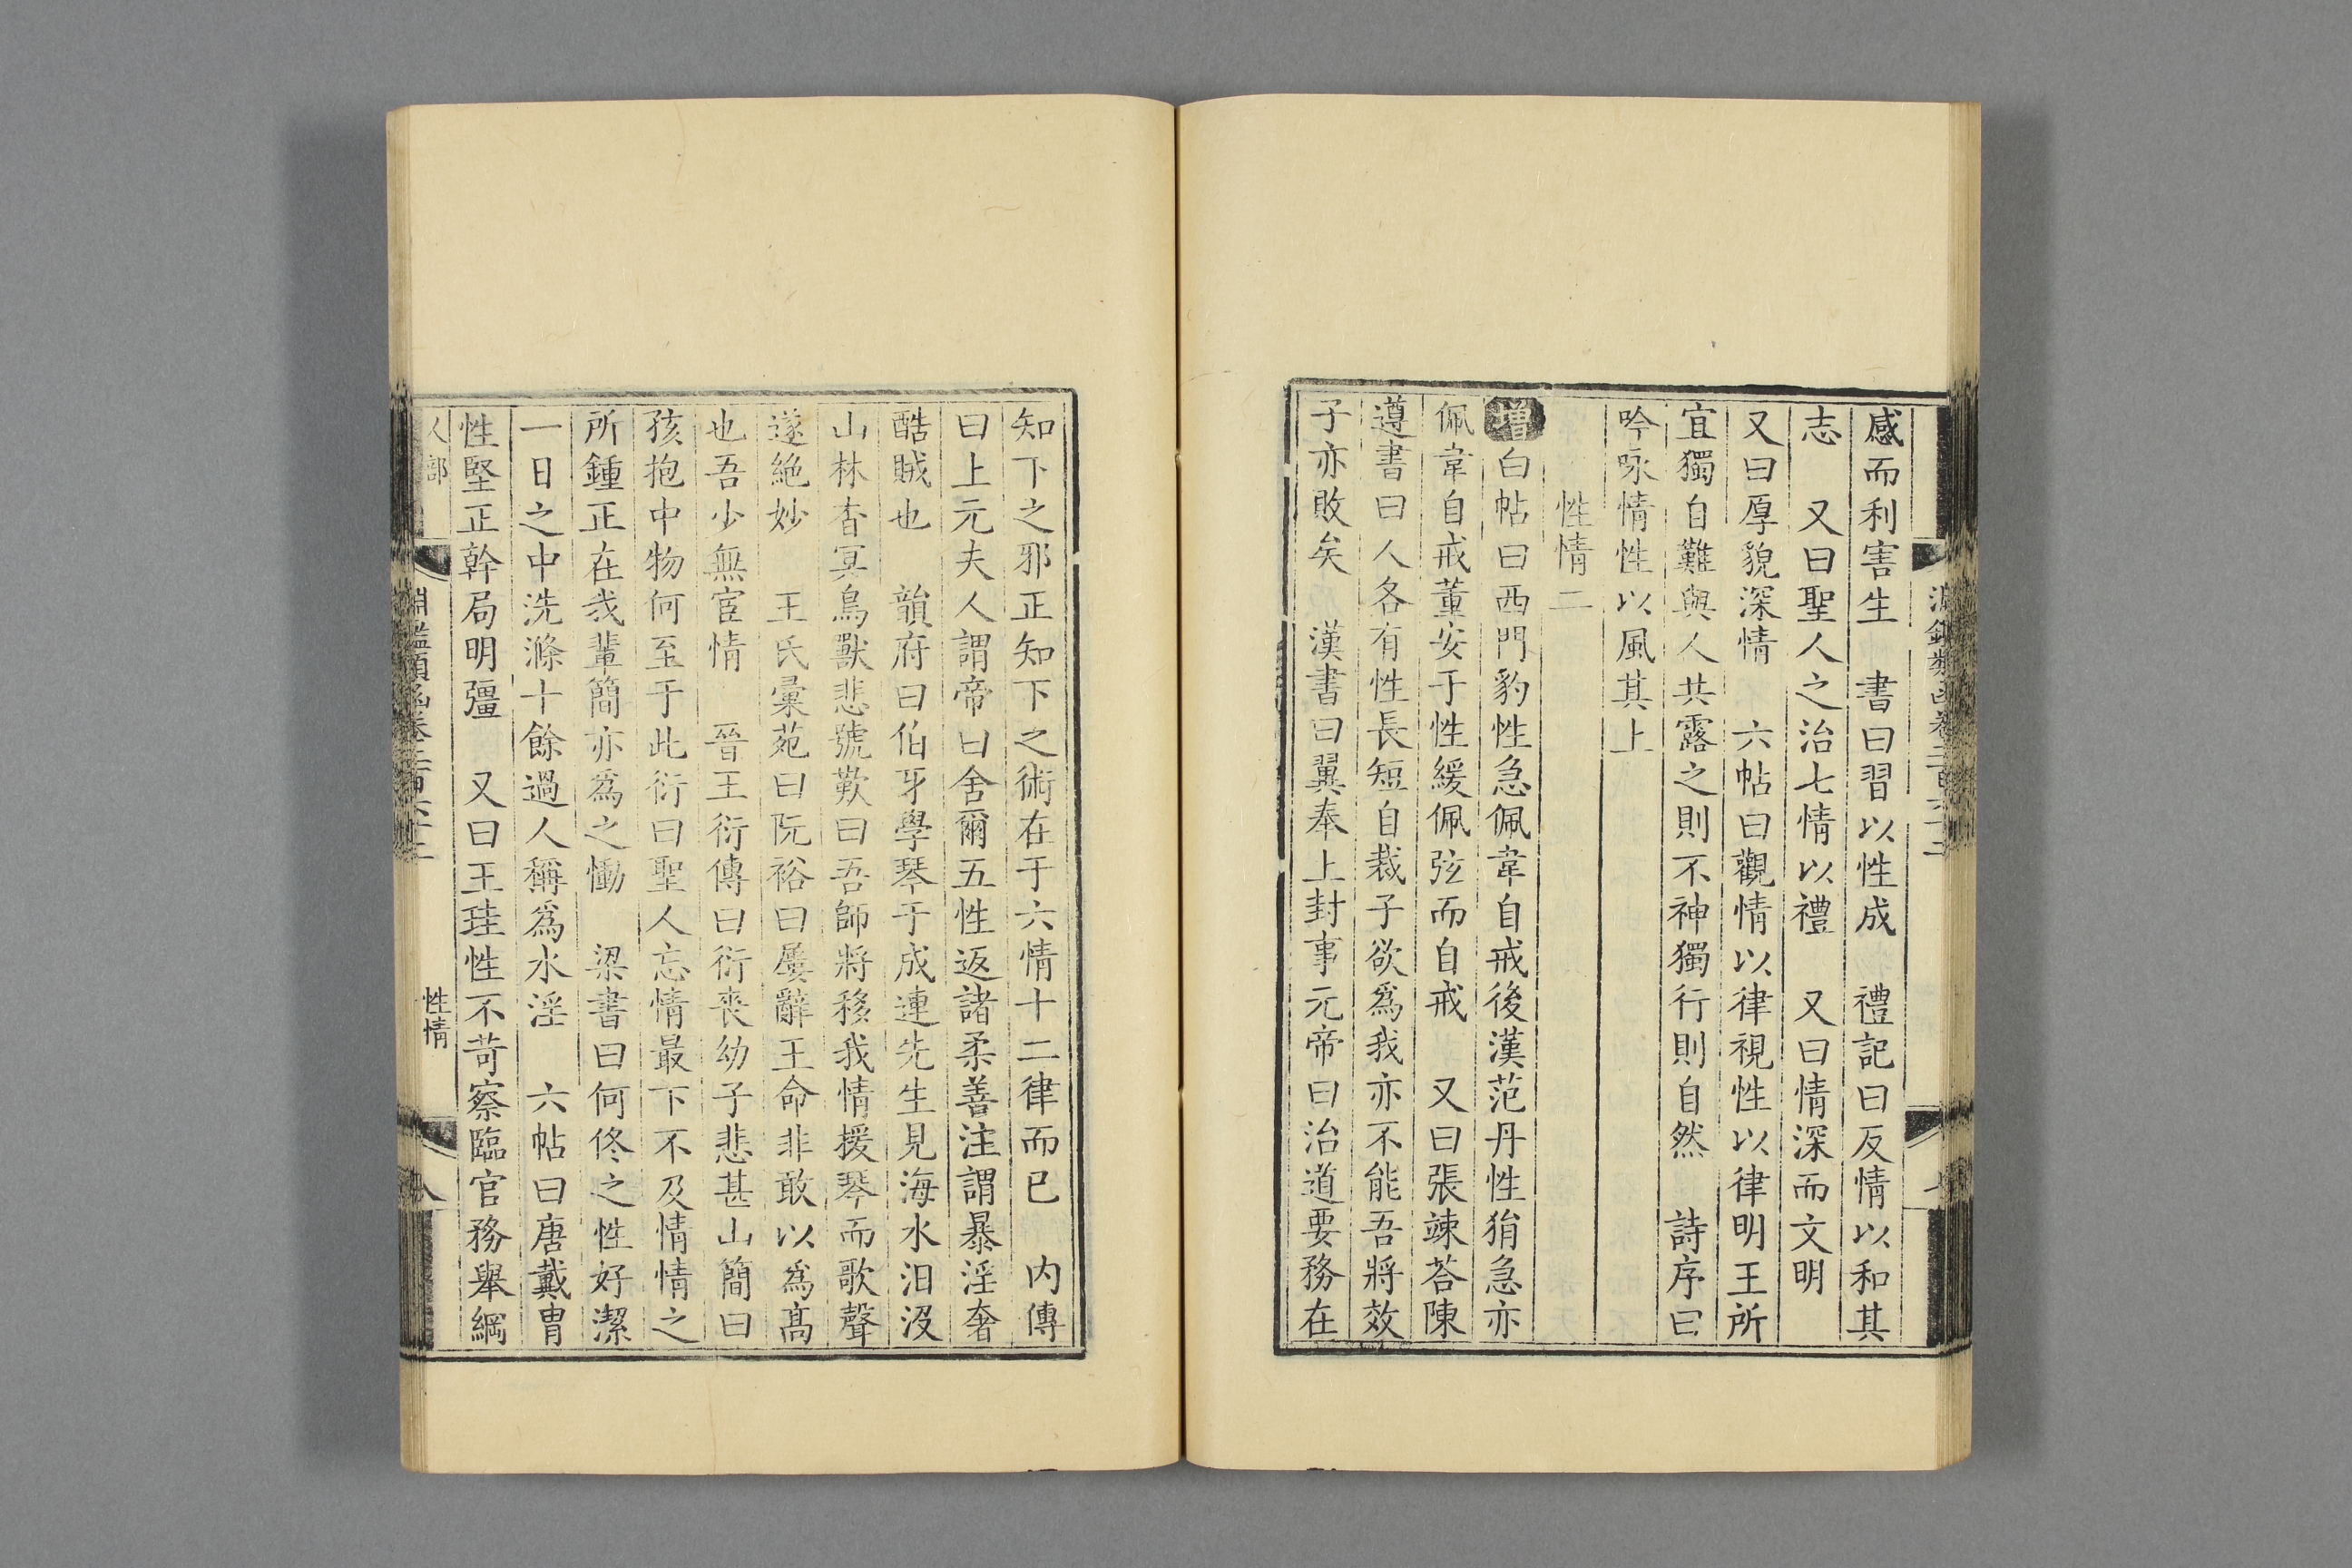 感而利害生　書曰習以性成　禮記曰反情以和其
志　又曰聖人之治七情以禮　又曰情深而文明
又曰厚貌深情　六帖曰觀情以律視性以律明王所
宜獨自難與人共露之則不神獨行則自然　詩序曰
吟咏情性以風其上
性情二
增白帖曰西門豹性急佩韋自戒後漢范丹性狷急亦
佩韋自戒董安于性緩佩弦而自戒　又曰張竦荅陳
遵書曰人各有性長短自裁子欲爲我亦不能吾將效
子亦敗矣　漢書曰翼奉上封事元帝曰治道要務在
知下之邪正知下之術在于六情十二律而已　内傳
曰上元夫人謂帝曰舍爾五性返諸柔善注謂暴淫奢
酷賊也　韻府曰伯牙學琴于成連先生見海水汨没
山林杳冥鳥獸悲號歎曰吾師將移我情援琴而歌聲
遂絶妙　王氏彚苑曰阮裕曰屢辭王命非敢以爲髙
也吾少無宦情　晉王衍傳曰衍喪幼子悲甚山簡曰
孩抱中物何至于此衍曰聖人忘情最下不及情情之
所鍾正在我輩簡亦爲之慟　梁書曰何佟之性好潔
一日之中洗滌十餘過人稱爲水淫　六帖曰唐戴胄
性堅正幹局明彊　又曰王珪性不苛察臨官務舉綱
人部
性情
八